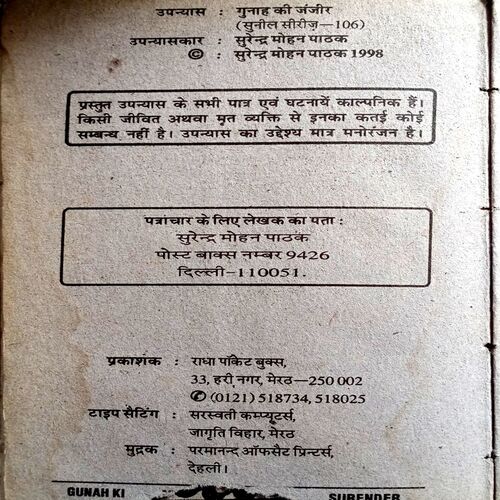 उपन्यास : गुनाह की जंजीर
(सुनील सीरीज़—106)
उपन्यासकार : सुरेन्द्र मोहन पाठक
© : सुरेन्द्र मोहन पाठक 1998
प्रस्तुत उपन्यास के सभी पात्र एवं घटनायें काल्पनिक हैं।
किसी जीवित अथवा मृत व्यक्ति से इनका कतई कोई
सम्बन्ध नहीं है। उपन्यास का उद्देश्य मात्र मनोरंजन है।
पत्राचार के लिए लेखक का पता :
सुरेन्द्र मोहन पाठक
पोस्ट बाक्स नम्बर 9426
दिल्ली-110051.
प्रकाशक : राधा पॉकेट बुक्स,
33, हरी नगर, मेरठ—250 002
✆ (0121) 518734, 518025
टाइप सैटिंग : सरस्वती कम्प्यूटर्स,
जागृति विहार, मेरठ
मुद्रक : परमानन्द ऑफसैट प्रिन्टर्स,
देहली।
GUNAH KI SURENDER